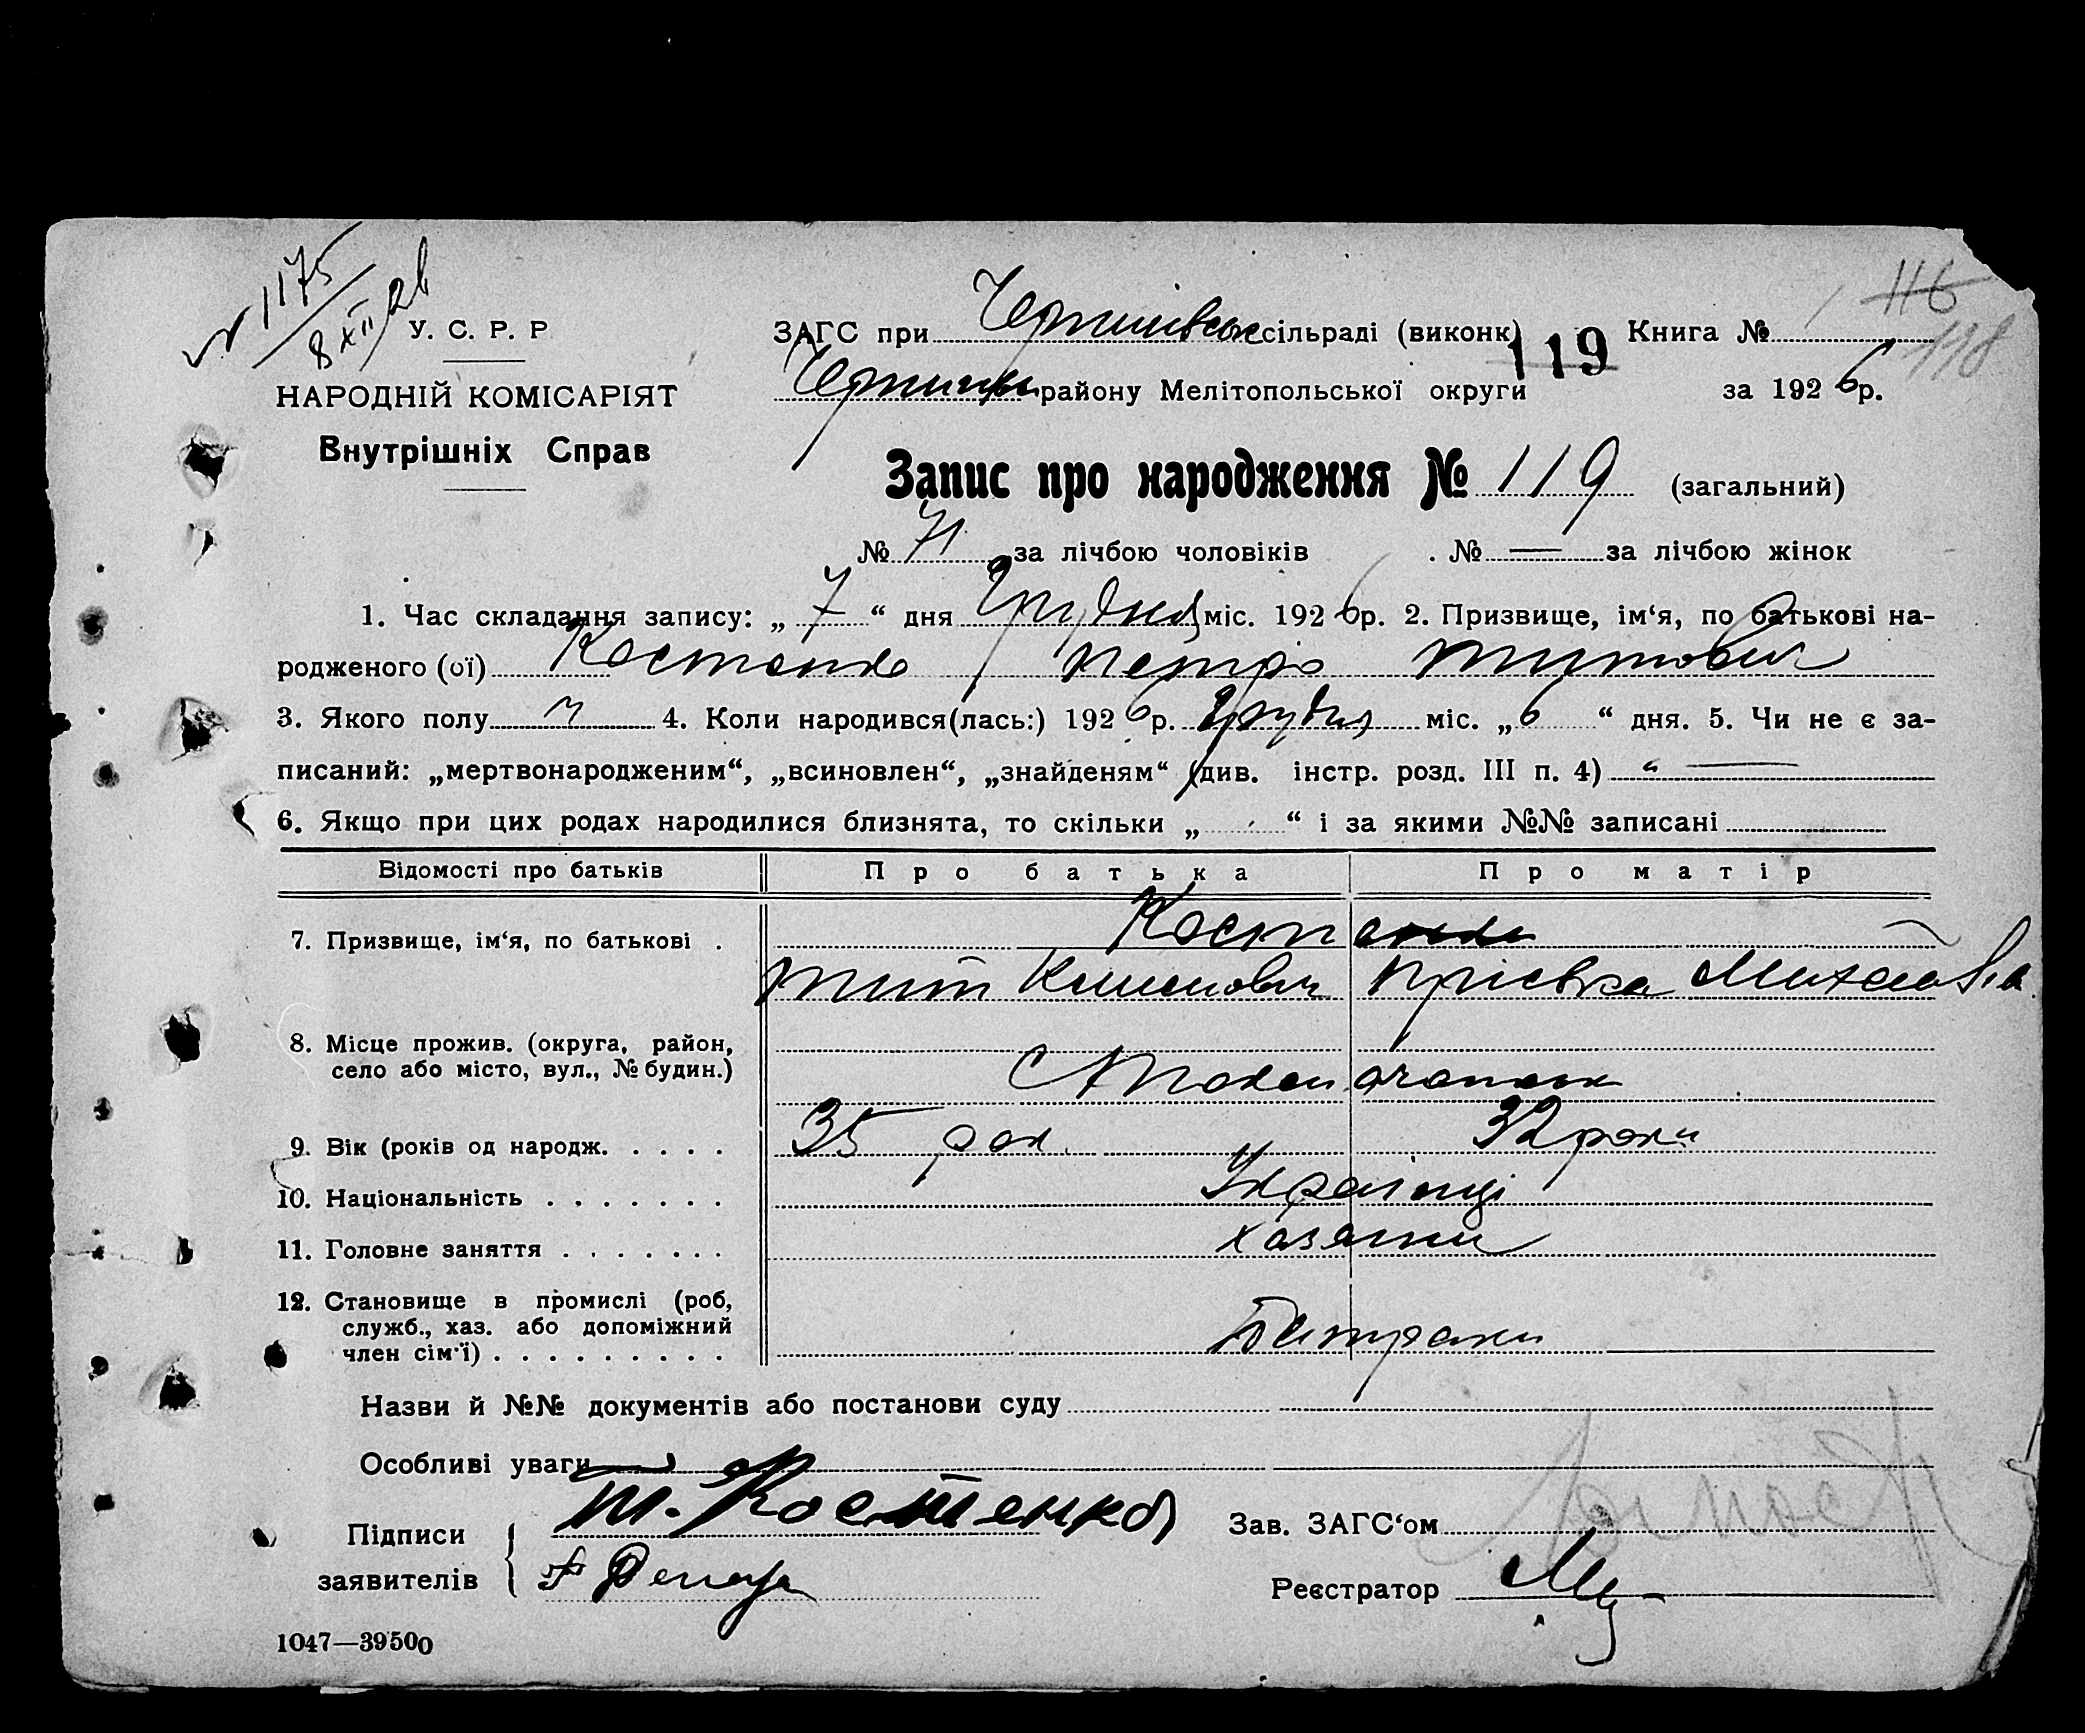 № 1175
8 XII 26
У. С. Р. Р
НАРОДНІЙ КОМІСАРІЯТ
Внутрішніх Справ
ЗАГС при сільраді (виконк) 119 Книга № 116
району Мелітопольської округи за 1926 р. 118
Запис про народження № 119 (загальний)
№ 71 за лічбою чоловіків . № — за лічбою жінок
1. Час складання запису: „ 7 “ дня Грудня міс. 1926 р. 2. Призвище, ім‘я, по батькові на-
родженого (ої) Костенко Петро Титович
3. Якого полу ч 4. Коли народився(лась:) 1926 р. Грудня міс. „ 6 “ дня. 5. Чи не є за-
писаний: „мертвонародженим“, „всиновлен“, „знайденям“ (див. інстр. розд. III п. 4) “ —
6. Якщо при цих родах народилися близнята, то скільки „ “ і за якими №№ записані
Відомості про батьків Про батька Про матір
7. Призвище, ім‘я, по батькові . Костенки
Тит Михайлівна
8. Місце прожив. (округа, район,
село або місто, вул., № будин.)
С
9. Вік (років од народж. . . . . 35 рок. 32 роки
10. Національність . . . . . . . Українці
11. Головне заняття . . . . . . . хазяини
12. Становище в промислі (роб,
служб., хаз. або допоміжний
член сім‘ї) . . . . . . . . . Батраки
Назви й №№ документів або постанови суду
Особливі уваги
Підписи
заявителів
Т. Костенко
Зав. ЗАГС‘ом
Реєстратор
1047—39500